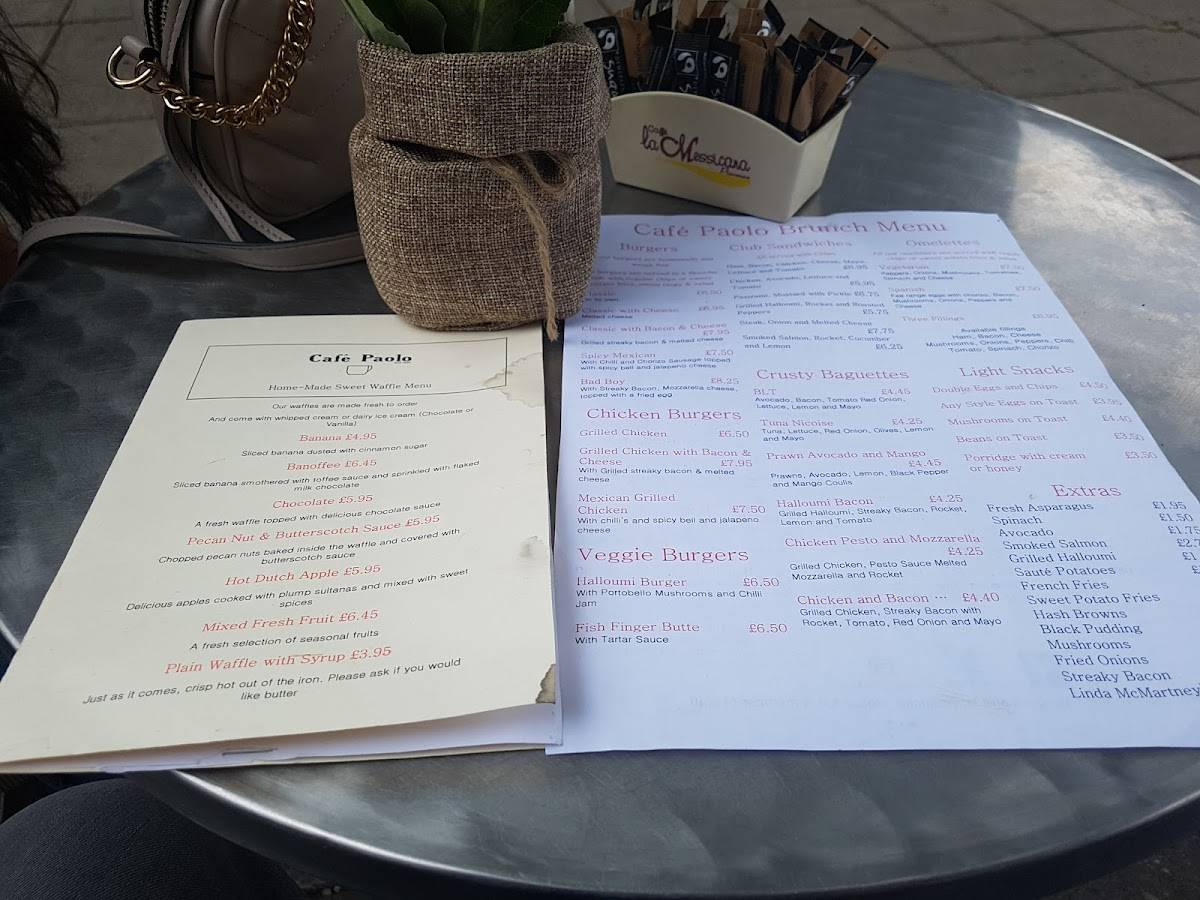 Café
la Messicana
Café Paolo
Home-Made Sweet Waffle Menu
Our waffles are made fresh to order
And come with whipped cream or dairy ice cream (Chocolate of
Vanilla)
Banana £4.95
Sliced banana dusted with cinnamon sugar
Banoffee £6.45
Sliced banana smothered with toffee sauce and sprinkled with flaked
milk chocolate
Chocolate £5.95
A fresh waffle topped with delicious chocolate sauce
Pecan Nut & Butterscotch Sauce £5.95
Chopped pecan nuts baked inside the waffle and covered with
butterscotch sauce
Hot Dutch Apple £5.95
Delicious apples cooked with plump sultanas and mixed with sweet
spices
Mixed Fresh Fruit £6.45
A fresh selection of seasonal fruits
Plain Waffle with Syrup £3.95
Just as it comes, crisp hot out of the iron. Please ask if you would
like butter
Café Paolo Brunch Menu
Burgers
Classic £6.50
Classic with Cheese £6.95
Melted cheese
Classic with Bacon & Cheese
£7.95
Grilled streaky bacon & melted cheese
Spicy Mexican £7.50
With Chilli and Chorizo Sausage topped
with spicy bell and jalapeno cheese
Bad Boy £8.25
With Streaky Bacon, Mozzarella cheese,
topped with a fried egg
Chicken Burgers
Grilled Chicken £6.50
Grilled Chicken with Bacon &
Cheese £7.95
With Grilled streaky bacon & melted
cheese
Mexican Grilled
Chicken £7.50
With chilli's and spicy bell and jalapeno
cheese
Veggie Burgers
Halloumi Burger £6.50
With Portobello Mushrooms and Chilli
Jam
Fish Finger Butte £6.50
With Tartar Sauce
Club Sandwiches
Ham, Bacon, Chicken, Cheese, Mayo,
Lettuce and Tomato £6.95
Chicken, Avocado, Lettuce and
Tomato £5.95
Pastrami, Mustard with Pickle £6.75
Grilled Halloumi, Rocket and Roasted
Peppers £5.75
Steak, Onion and Melted Cheese
£7.75
Smoked Salmon, Rocket, Cucumber
and Lemon £6.25
Crusty Baguettes
BLT £4.45
Avocado, Bacon, Tomato Red Onion,
Lettuce, Lemon and Mayo
Tuna Nicoise £4.25
Tuna, Lettuce, Red Onion, Olives, Lemon
and Mayo
Prawn Avocado and Mango
£4.45
Prawns, Avocado, Lemon, Black Pepper
and Mango Coulis
Halloumi Bacon £4.25
Grilled Halloumi, Streaky Bacon, Rocket,
Lemon and Tomato
Chicken Pesto and Mozzarella
£4.25
Grilled Chicken, Pesto Sauce Melted
Mozzarella and Rocket
Chicken and Bacon ... £4.40
Grilled Chicken, Streaky Bacon with
Rocket, Tomato, Red Onion and Mayo
Omelettes
Vegetarian £7.50
Peppers, Onions, Mushrooms, Tomatoes,
Spinach and Cheese
Spanish £7.50
Free range eggs with chorizo, Bacon,
Mushrooms, Onions, Peppers and
Cheese
Three Fillings £6.95
Available fillings
Ham, Bacon, Cheese
Mushrooms, Onions, Peppers, Chilli
Tomato, Spinach, Chorizo
Light Snacks
Double Eggs and Chips £4.50
Any Style Eggs on Toast £3.95
Mushrooms on Toast £4.40
Beans on Toast £3.50
Porridge with cream £3.50
or honey
Extras
Fresh Asparagus £1.95
Spinach £1.50
Avocado £1.75
Smoked Salmon £2.7
Grilled Halloumi £1
Sauté Potatoes £
French Fries
Sweet Potato Fries
Hash Browns
Black Pudding
Mushrooms
Fried Onions
Streaky Bacon
Linda McMartney